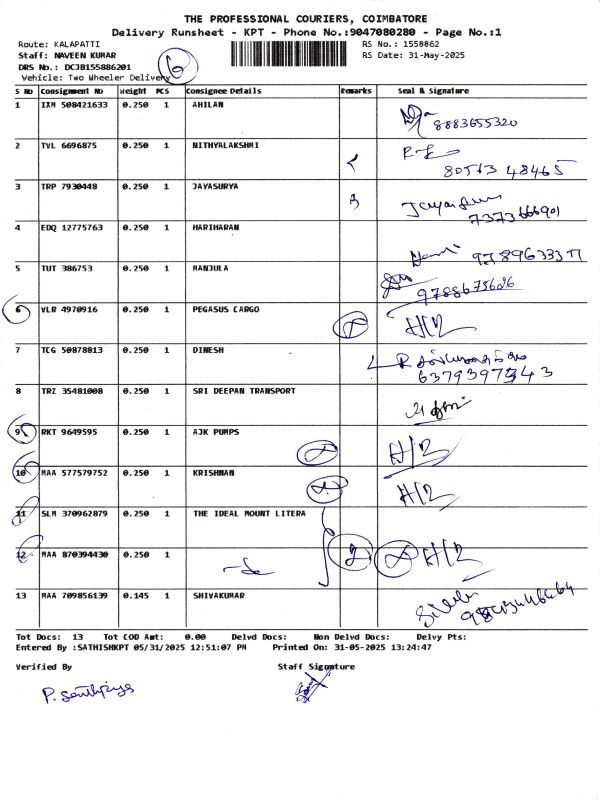 THE PROFESSIONAL COURIERS, COIMBATORE
Delivery Runsheet - KPT - Phone No.:9047080280 - Page No.:1
Route: KALAPATTI RS No.: 1558862
Staff: NAVEEN KUMAR RS Date: 31-May-2025
DRS No.: DCJB155886201
Vehicle: Two Wheeler Delivery 6
S No Consignment No Weight PCS Consignee Details Remarks Seal & Signature
1 IXM 508421633 0.250 1 AHILAN
8883655320
2 TVL 6696875 0.250 1 NITHYALAKSHMI
80563 48465
3 TRP 7930448 0.250 1 JAYASURYA
7373666901
4 EDQ 12775763 0.250 1 HARIHARAN
5 TUT 386753 0.250 1 RANJULA
9788675626
6 VLR 4970916 0.250 1 PEGASUS CARGO
7 TCG 50878813 0.250 1 DINESH
8 TRZ 35481008 0.250 1 SRI DEEPAN TRANSPORT
9 RKT 9649595 0.250 1 AJK PUMPS
10 MAA 577579752 0.250 1 KRISHNAN
11 SLM 370962879 0.250 1 THE IDEAL MOUNT LITERA
12 MAA 870394430 0.250 1 2
13 MAA 709856139 0.145 1 SHIVAKUMAR
Tot Docs: 13 Tot COD Amt: 0.00 Delvd Docs: Non Delvd Docs: Delvy Pts:
Entered By :SATHISHKPT 05/31/2025 12:51:07 PM Printed On: 31-05-2025 13:24:47
Verified By Staff Signature